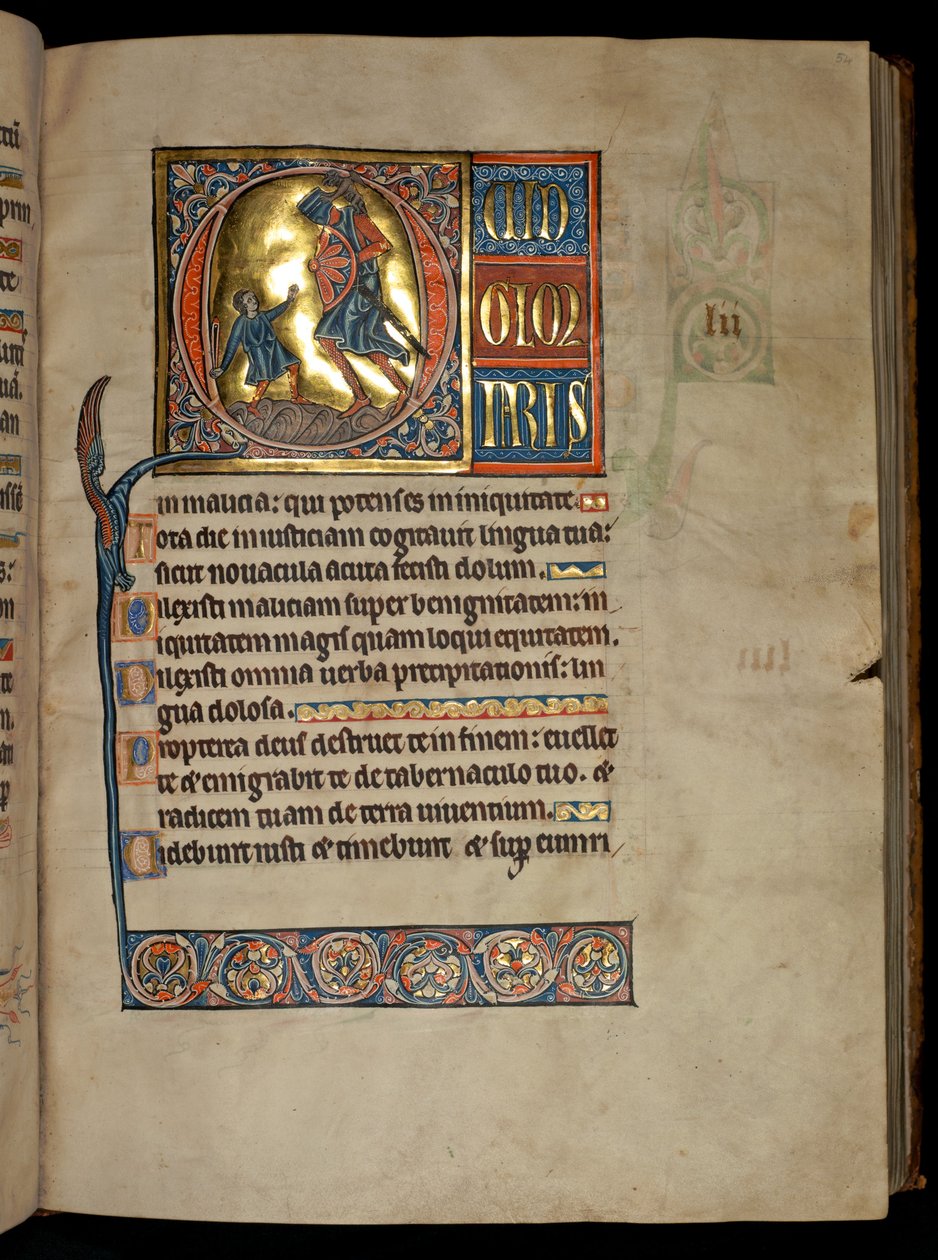 54
QUID
GLORI
ARIS
lii
in malicia: qui potens es in iniquitate.
Tota die iniusticiam cogitauit lingua tua:
sicut nouacula acuta fecisti dolum.
Dilexisti maliciam super benignitatem: in
iquitatem magis quam loqui equitatem.
Dilexisti omnia uerba precipitationis: lin
gua dolosa.
Propterea deus destruet te in finem: euellet
te & emigrabit te de tabernaculo tuo. &
radicem tuam de terra uiuentium.
Videbunt iusti & timebunt & sup eum ri